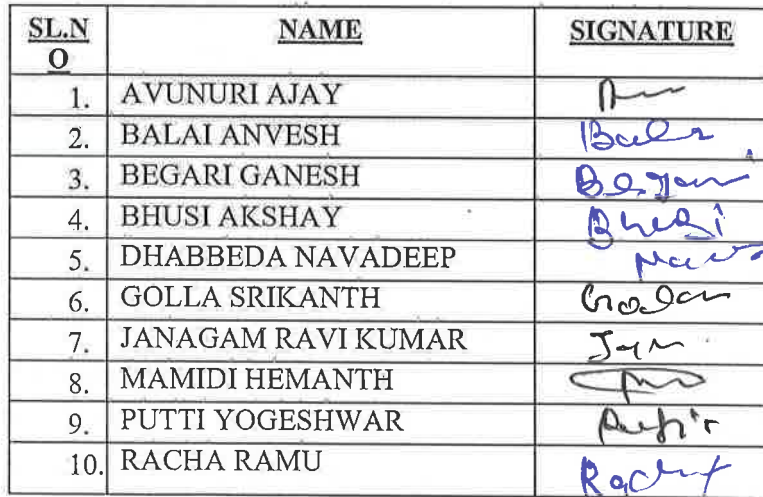 SL.N NAME SIGNATURE
O
1. AVUNURI AJAY
2. BALAI ANVESH
3. BEGARI GANESH
4. BHUSI AKSHAY Bhusi
5. DHABBEDA NAVADEEP
6. GOLLA SRIKANTH
7. JANAGAM RAVI KUMAR
8. MAMIDI HEMANTH
9. PUTTI YOGESHWAR
10. RACHA RAMU